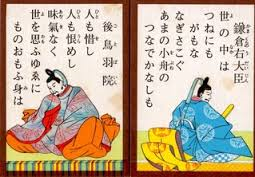 鎌倉右大臣
世の中は
つねにも
がもな
なぎさこぐ
あまの小舟の
つなでかなしも
後鳥羽院
人も惜し
人も恨めし
味氣なく
世を思ふゆゑに
ものおもふ身は